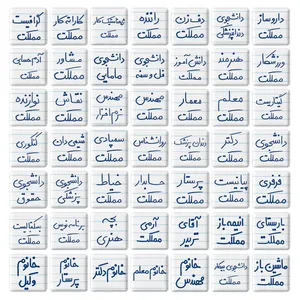 داروساز
مملکت
دانشجوی
دندانپزشکی
دف زن
مملکت
راننده
مملکت
ژیمناستیک کار
مملکت
کاراته کار
مملکت
گرافیست
مملکت
ورزشکار
مملکت
هنرمند
مملکت
دانش آموز
مملکت
دانشجوی
فل و سفه
دانشجوی
مامایی
مشاور
مملکت
آدم حسابی
مملکت
گیتاریست
مملکت
معلم
مملکت
معمار
مملکت
مهندس
نرم افزار
مهندس
مملکت
نقاش
مملکت
نوازنده
مملکت
مملکت
دکتر
مملکت
دندان پزشک
مملکت
روانشناس
مملکت
سمپادی
مملکت
شیمی دان
مملکت
کنکوری
مملکت
فرفری
مملکت
پیانیست
مملکت
پرستار
مملکت
حسابدار
مملکت
خیاط
مملکت
دانشجوی
پزشکی
دانشجوی
حقوق
باریستای
مملکت
انیمه باز
مملکت
آقای
تریدر
آرمی
مملکت
بچه
هنری
برنامه نویس
مملکت
بسکتبالیست
مملکت
ماشین باز
مملکت
دانشجوی بیکار
مملکت
خانوم
مهندس
خانوم معلم
خانوم دکتر
خانوم
پرستار
خانوم
وکیل